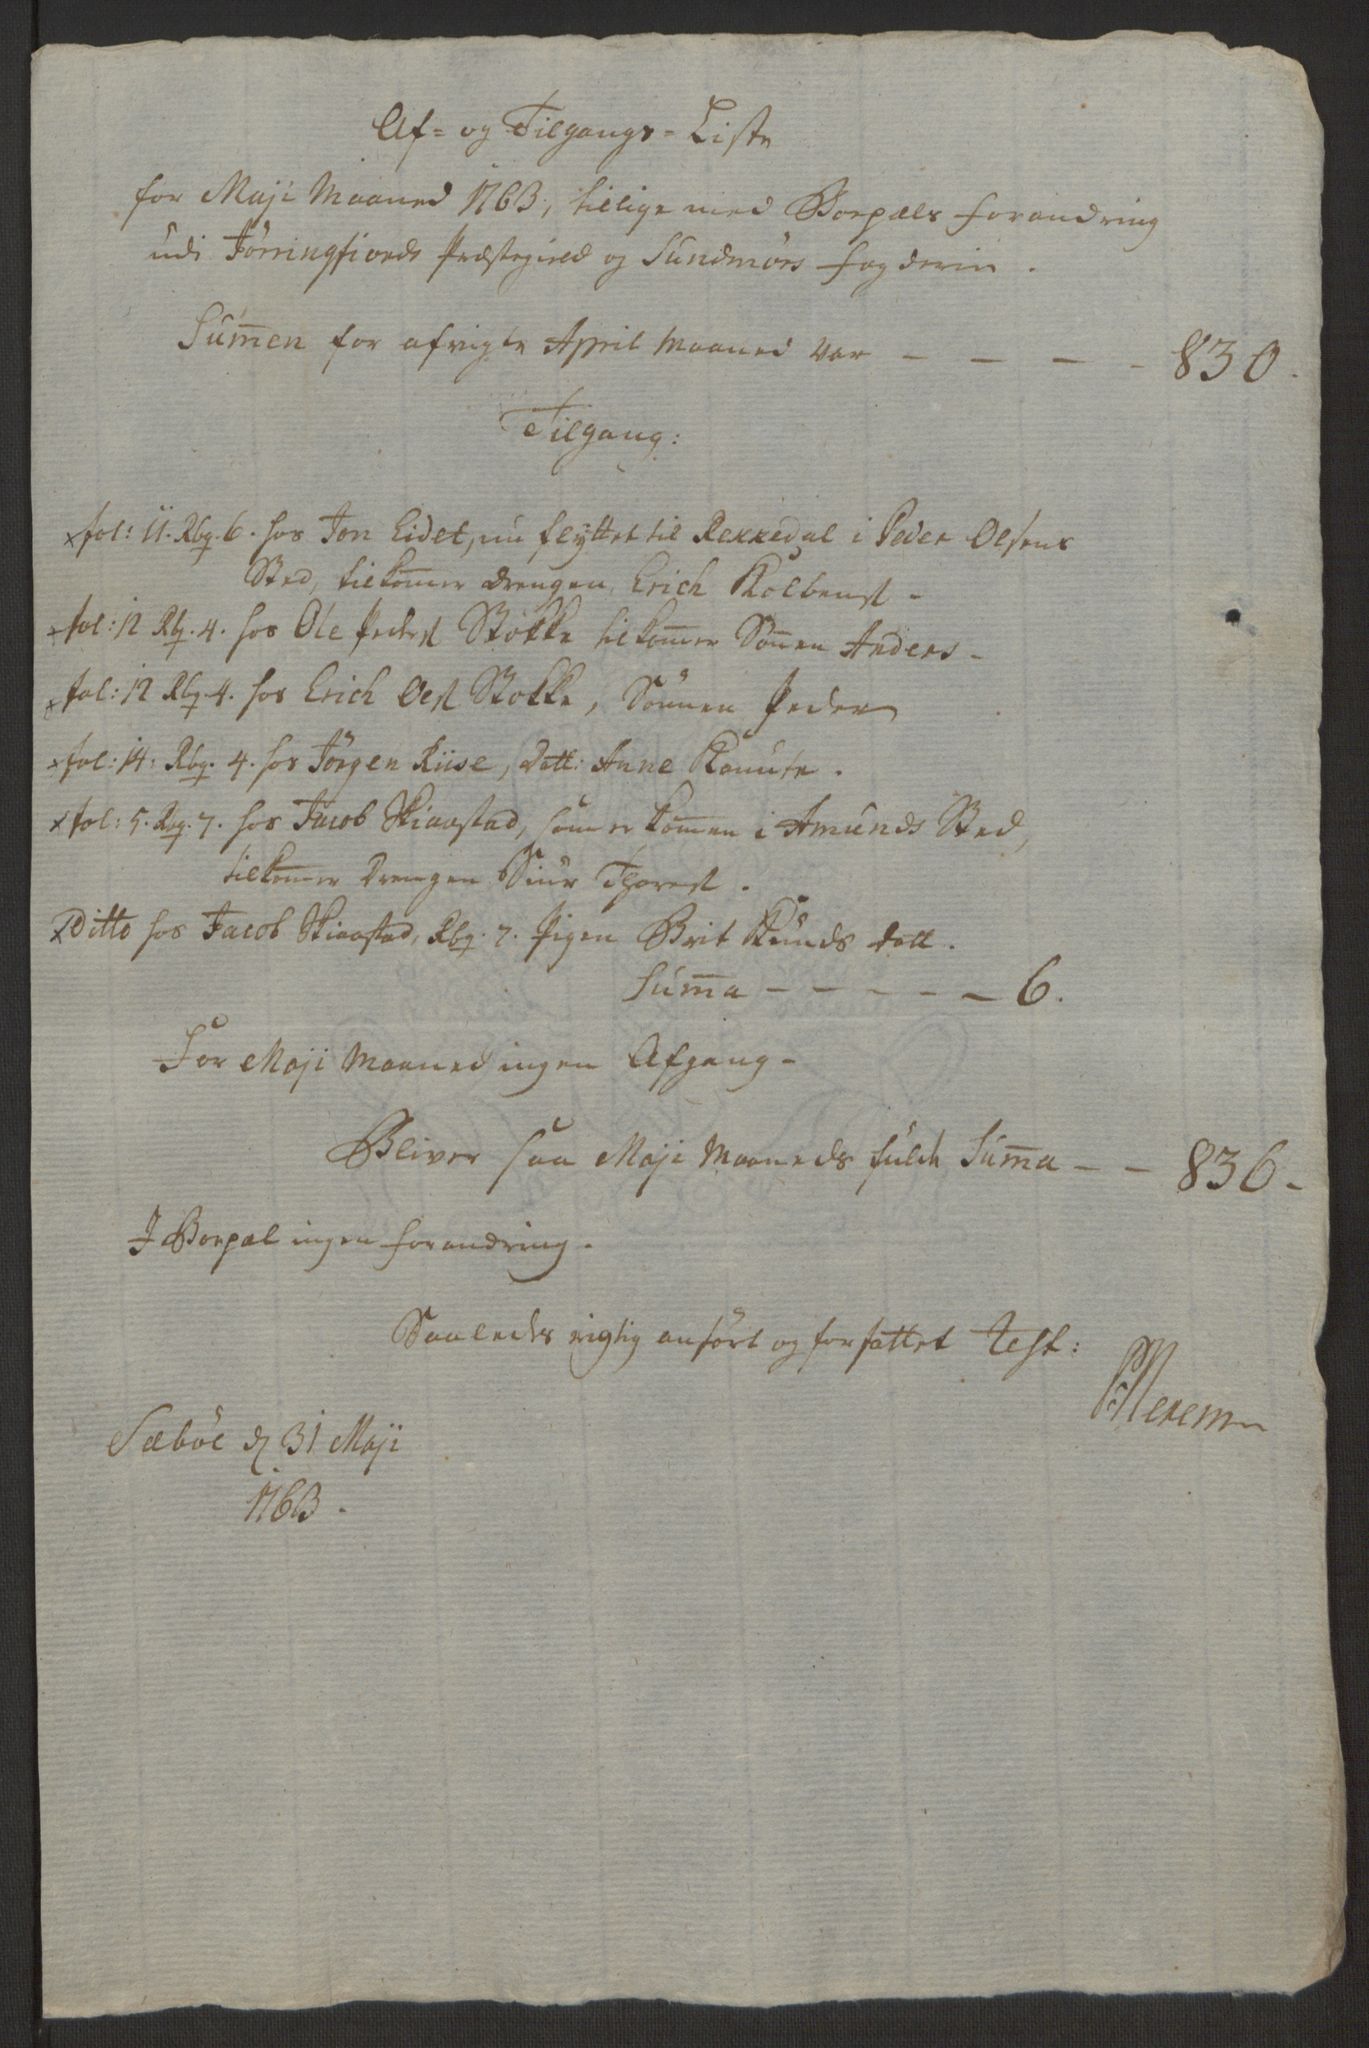 Af- og Tilgangs-Liste
for Maji Maaned 1763, tillige med Boepæls forandring
udi Jörringfiords Præstegield og Sundmörs fogderie.
Sum̄en for afvigte April Maaned var - - - - 830.
Tilgang:
x fol: 11. Rbq. 6. hos Jon Eidet, nu flyttet til Rekkedal i Peder Olsens
Sted, tilkom̄er drengen Erich Kolbenst -
x fol: 12 Rbq. 4. hos Ole Peders Stokke tilkom̄er Sönnen Anders -
x fol: 12 Rbq. 4. hos Erich Oles Stokke, Sönnen Peder
x fol: 14: Rbq. 4. hos Jörgen Riise, Datt: Anne Kanute.
x fol: 5. Rbq. 7. hos Jacob Skiaastad, som er kom̄en i Amunds Sted,
tilkom̄er Drengen Siur Thorest.
x Ditto hos Jacob Skiaastad, Rbq. 7. Pigen Brit Knuds datt.
Sum̄a - - - - - 6.
For Maji Maaned ingen Afgang -
Bliver saa Maji Maaneds fulde Sum̄a - - 836 -
I Boepæl ingen forandring.
Saaledes rigtig anfört og forfattet Test:
Sæböe d 31 Maji
1763.